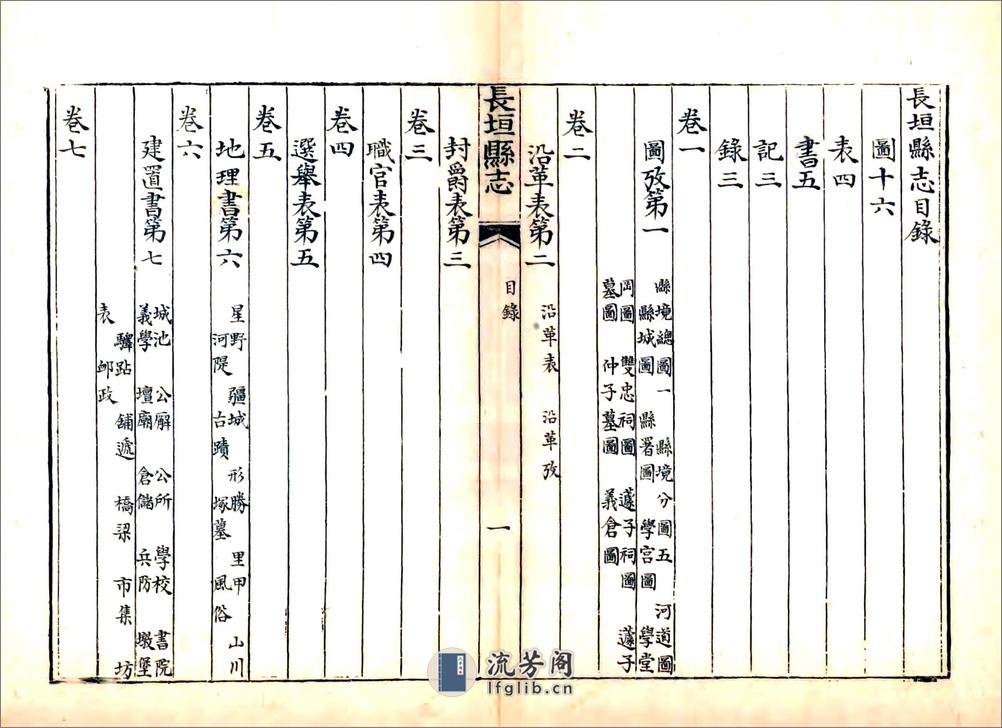 長垣縣志目錄
圖十六
表四
書五
記三
錄三
卷一
圖攷第一
縣境總圖一 縣境分圖五 河道圖
縣城圖 縣署圖 學宮圖 學堂
岡圖 雙忠祠圖 蘧子祠圖 蘧子
墓圖 仲子墓圖 義倉圖
卷二
沿革表第二 沿革表 沿革攷
長垣縣志 目錄 一
封爵表第三
卷三
職官表第四
卷四
選舉表第五
卷五
地理書第六
星野 疆域 形勝 里甲 山川
河隄 古蹟 塚墓 風俗
卷六
建置書第七
城池 公廨 公所 學校 書院
義學 壇廟 倉儲 兵防 墩堡
驛跕 舖遞 橋梁 市集 坊
表 郵政
卷七
流芳阁
lfglib.cn